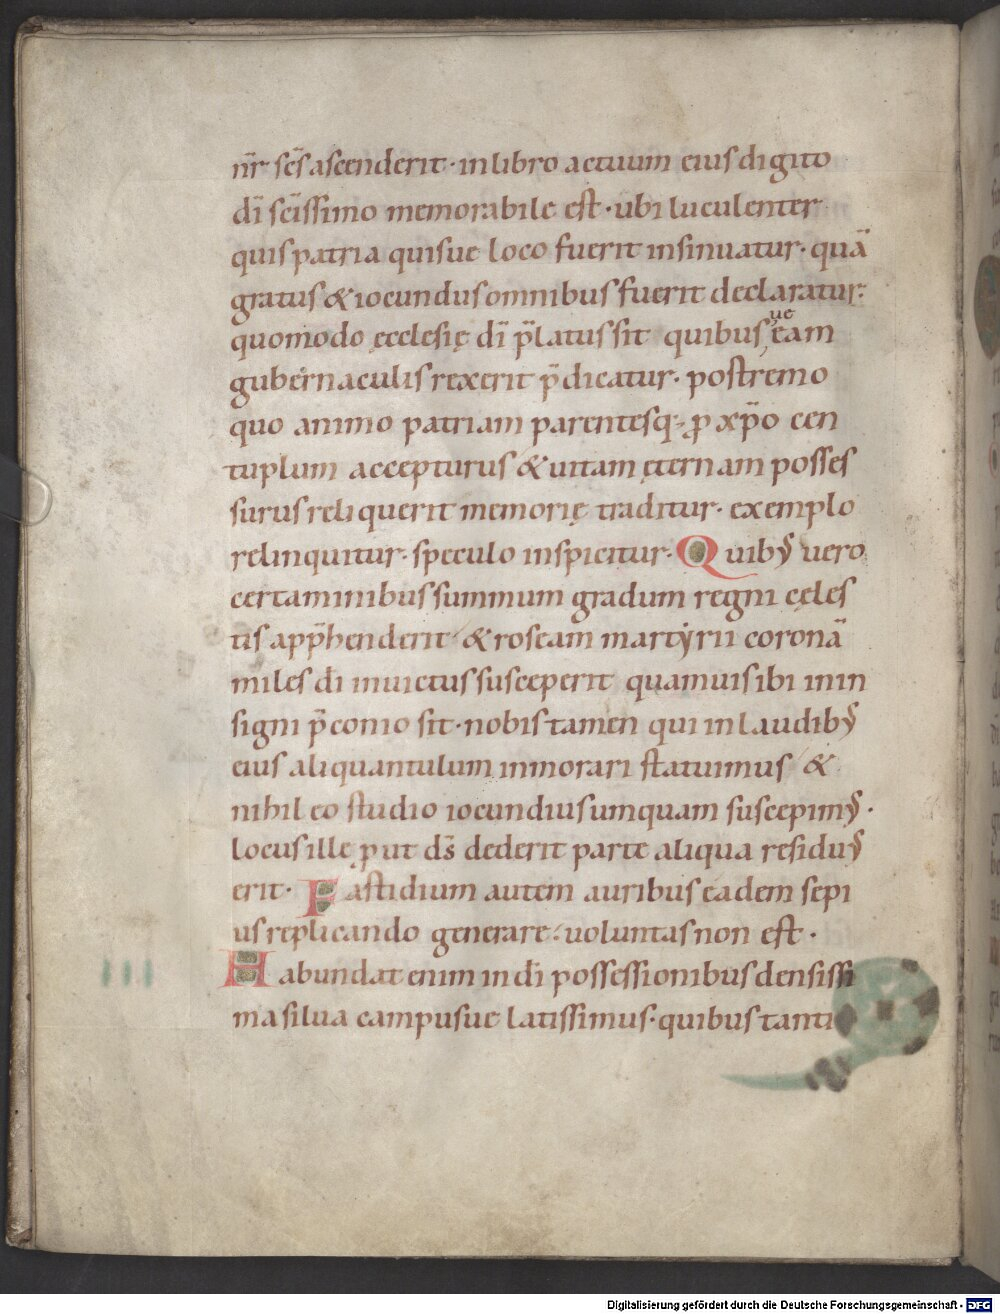 nr̄ sc̄s ascenderit · in libro actuum eius digito
dī sc̄issimo memorabile est · ubi luculenter
quis patria quisue loco fuerit insinuatur · quā
gratus & iocundus omnibus fuerit declaratur ·
quomodo ęcclesię dī p̄latus sit quibus ue eam
gubernaculis rexerit p̄dicatur · postremo
quo animo patriam parentesq; ꝓ xp̄o cen
tuplum accepturus & uitam ęternam posses
surus reliquerit memorię traditur · exemplo
relinquitur · speculo inspicitur · Quibꝰ uero
certaminibus summum gradum regni cęles
tis app̄henderit & roseam martyrii coronā
miles dī inuictus susceperit quamuis ibi in in
signi p̄conio sit · nobis tamen qui in laudibꝰ
eius aliquantulum inmorari statuimus &
nihil eo studio iocundius umquam suscepimꝰ ·
locus ille ꝓut ds̄ dederit parte aliqua residuꝰ
erit · Fastidium autem auribus eadem sepi
us replicando generare · uoluntas non est ·
Habundat enim in dī possessionibus densissi
ma silua campusue latissimus · quibus tanti
Digitalisierung gefördert durch die Deutsche Forschungsgemeinschaft - DFG